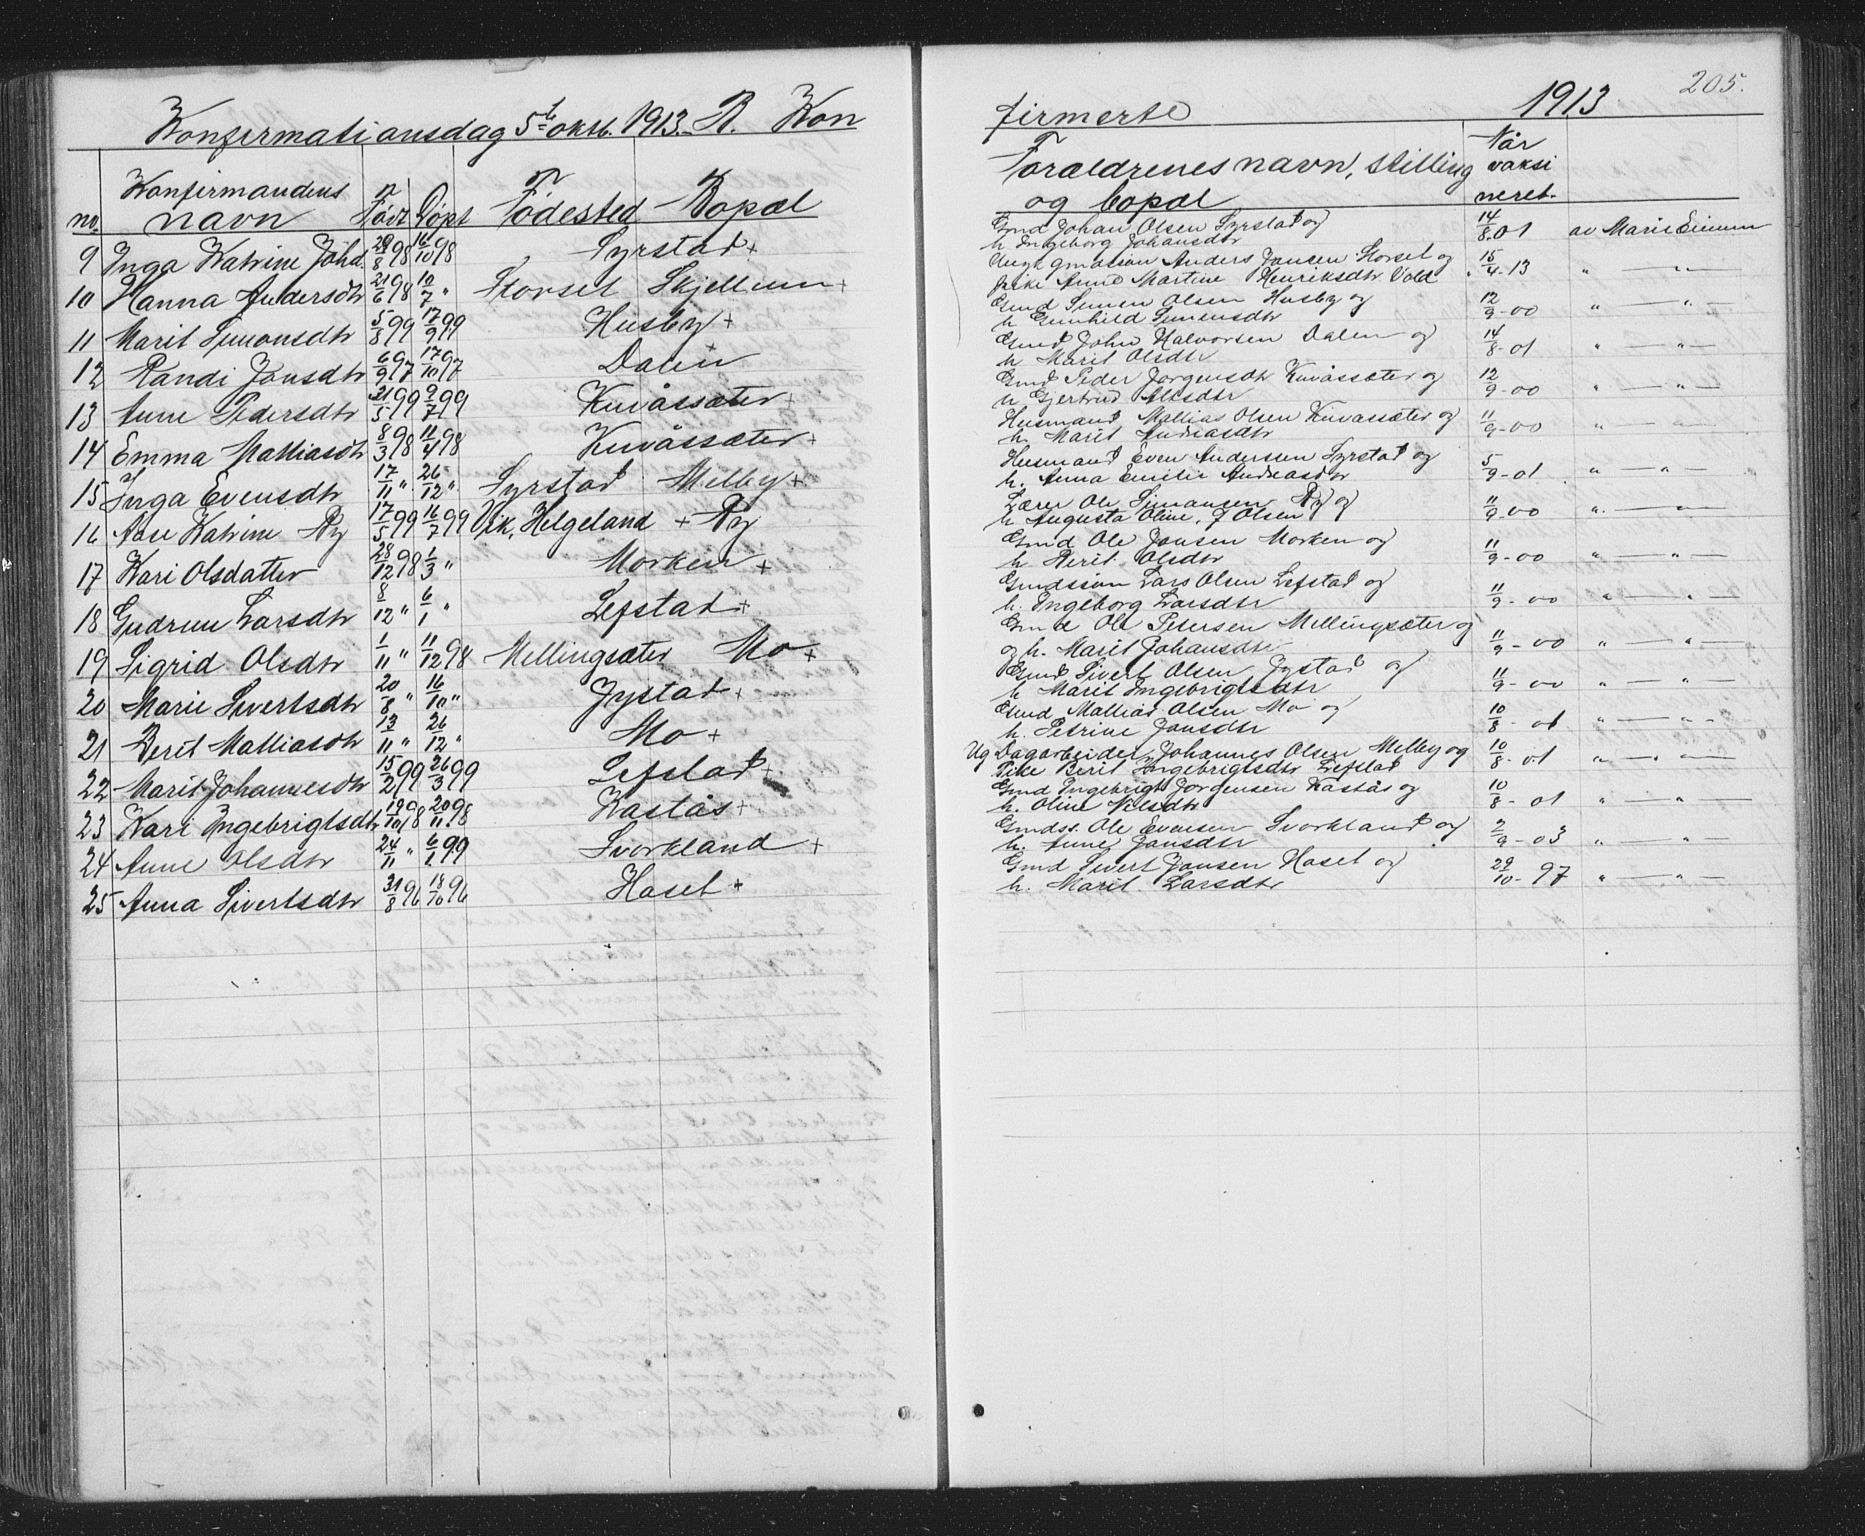 Konfirmationsdag 5te oktb. 1913. R. Kon
no. Konfirmandens navn Født Døpt Fødested Bopæl
9 Inga Katrine Johd. 29/8 98 16/10 98 Syrstad +
10 Hanna Andersdtr 21/6 98 10/7 " Storset Skjellum +
11 Marit Simonsdtr 5/8 99 17/9 99 Husby +
12 Randi Jonsdtr 6/9 97 17/10 97 Dalen
13 Anne Pedersdtr 21/5 99 2/7 99 Kuvåssæter +
14 Emma Mathiasdtr 8/3 98 11/4 98 Kuvåssæter +
15 Inga Evensdtr 17/11 " 26/12 " Syrstad Melby +
16 Aase Katrine Ry 17/5 99 16/7 99 Vik, Helgeland + Ry
17 Kari Olsdatter 28/12 98 1/3 " Morken +
18 Gudrun Larsdtr 8/12 " 6/1 " Lefstad +
19 Sigrid Olsdtr 1/11 " 11/12 98 Mellingsæter Mo +
20 Marie Sivertsdtr 20/8 " 16/10 " Jystad +
21 Berit Mathiasdtr 13/11 " 26/12 " Mo +
22 Marit Johannesdtr 15/2 99 26/3 99 Lefstad +
23 Kari Ingebrigtsdtr 19/10 98 20/11 98 Kastås +
24 Anne Olsdtr 24/11 " 6/1 99 Svorkland +
25 Anna Sivertsdtr 31/8 96 18/10 96 Haset +
205.
firmerte 1913
Forældrenes navn, stilling og bopæl Når vaksineret.
Gmd Johan Olsen Syrstad og
h. Ingeborg Johansdtr 14/8-01 av Marie Eimum
Ungk gmdssøn Anders Jonsen Storset og
pike Anne Martine Henriksdtr Vold 15/4-13 " — " —
Gmd Simen Olsen Husby og
h. Gunhild Simensdtr 12/9-00 " — " —
Gmd John Halvorsen Dalen og
h. Marit Olsdtr 14/8-01 " — " —
Gmd Peder Jørgensdtr Kuvåssæter og
h. Gjertrud Olsdtr 12/9-00 " — " —
Husmand Mathias Olsen Kuvassæter og
h. Marit Andreasdtr 11/9-00 " — " —
Husmand Even Andersen Syrstad og
h. Anna Emilie Andreasdtr 5/9-01 " — " —
Lærer Ole Simonsen Ry og
h. Augusta Oline, f Olsen 11/9-00 " — " —
Gmd Ole Jonsen Morken og
h. Berit Olsdtr 11/9-00 " — " —
Gmdssøn Lars Olsen Lefstad og
h. Ingeborg Larsdtr 11/9-00 " — " —
Gmd Ole Petersen Mellingsæter og
og h. Marit Johansdtr 11/9-00 " — " —
Gmd Sivert Olsen Jystad og
h. Marit Ingebrigtsdtr 11/9-00 " — " —
Gmd Mathias Olsen Mo og
h. Petrine Jonsdtr 10/8-01 " — " —
Ug Dagarbeider Johannes Olsen Melby og
Pike Berit Ingebrigtsdtr Lefstad 10/8-01 " — " —
Gmd Ingebrigt Jørgensen Kastås og
h. Oline Nilsdtr 10/8-01 " — " —
Gmdss. Ole Evensen Svorkland og
h. Anne Jonsdtr 2/9-03 " — " —
Gmd Sivert Jonsen Haset og
h. Marit Larsdtr 29/10-97 " — " —